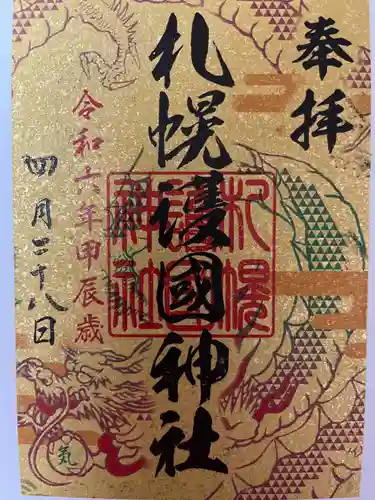 奉拝
札幌護國神社
札幌
護國
神社
令和六年甲辰歳
四月二十八日
気